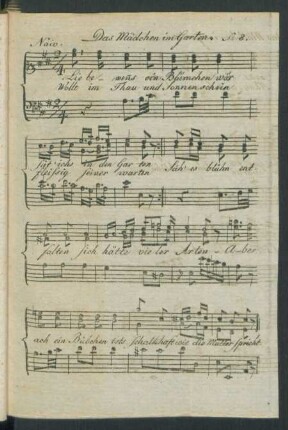 Das Mädchen im Garten. No. 8.
Naiv.
Lie be wens ein Blümchen wär
Wollt im Thau und Sonnenschein
sät ichs in den Gar ten
fleißig seiner warten Säh es blühn ent
falten sich hätte vie ler Arten - Aber
ach ein Bübchen schalkhaft wie die Mutter spricht